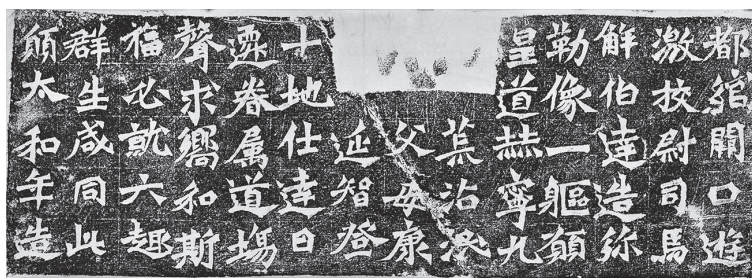 都綰闕口遊
激挍尉司馬
解伯達造弥
勒像一軀願
皇道赫寧九
荒沾澤
父母康
延智登
十地仕達日
遷眷属道塲
聲求嚮和斯
福必就六趣
群生咸同此
願太和年造